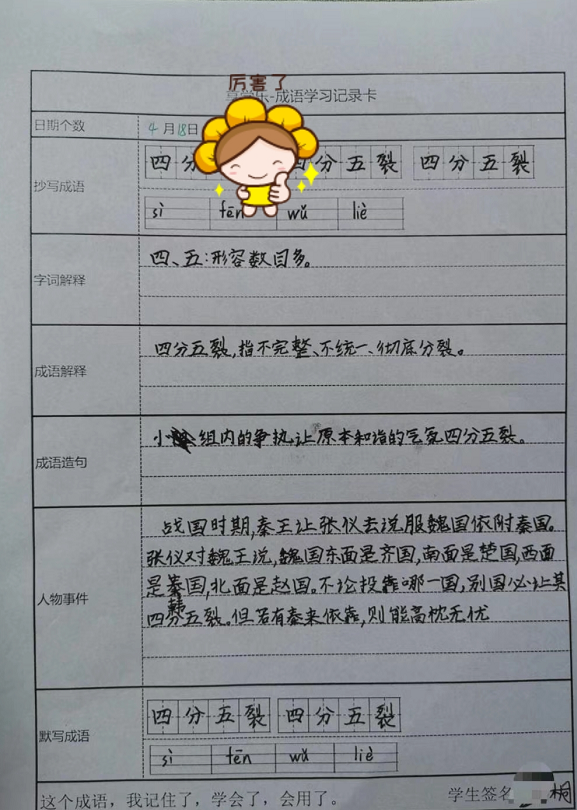 厉害了
乐-成语学习记录卡
日期个数 4月18日
抄写成语 四分 四分五裂 四分五裂
sì fēn wǔ liè
字词解释 四、五:形容数目多。
成语解释 四分五裂,指不完整、不统一、彻底分裂。
成语造句 小组内的争执让原本和谐的气氛四分五裂。
人物事件 战国时期,秦王让张仪去说服魏国依附秦国。
张仪对魏王说,魏国东面是齐国,南面是楚国,西面
是韩国,北面是赵国。不论投靠哪一国,别国必让其
四分五裂。但若有秦来依靠,则能高枕无忧
默写成语 四分五裂 四分五裂
sì fēn wǔ liè
这个成语,我记住了,学会了,会用了。 学生签名 桐